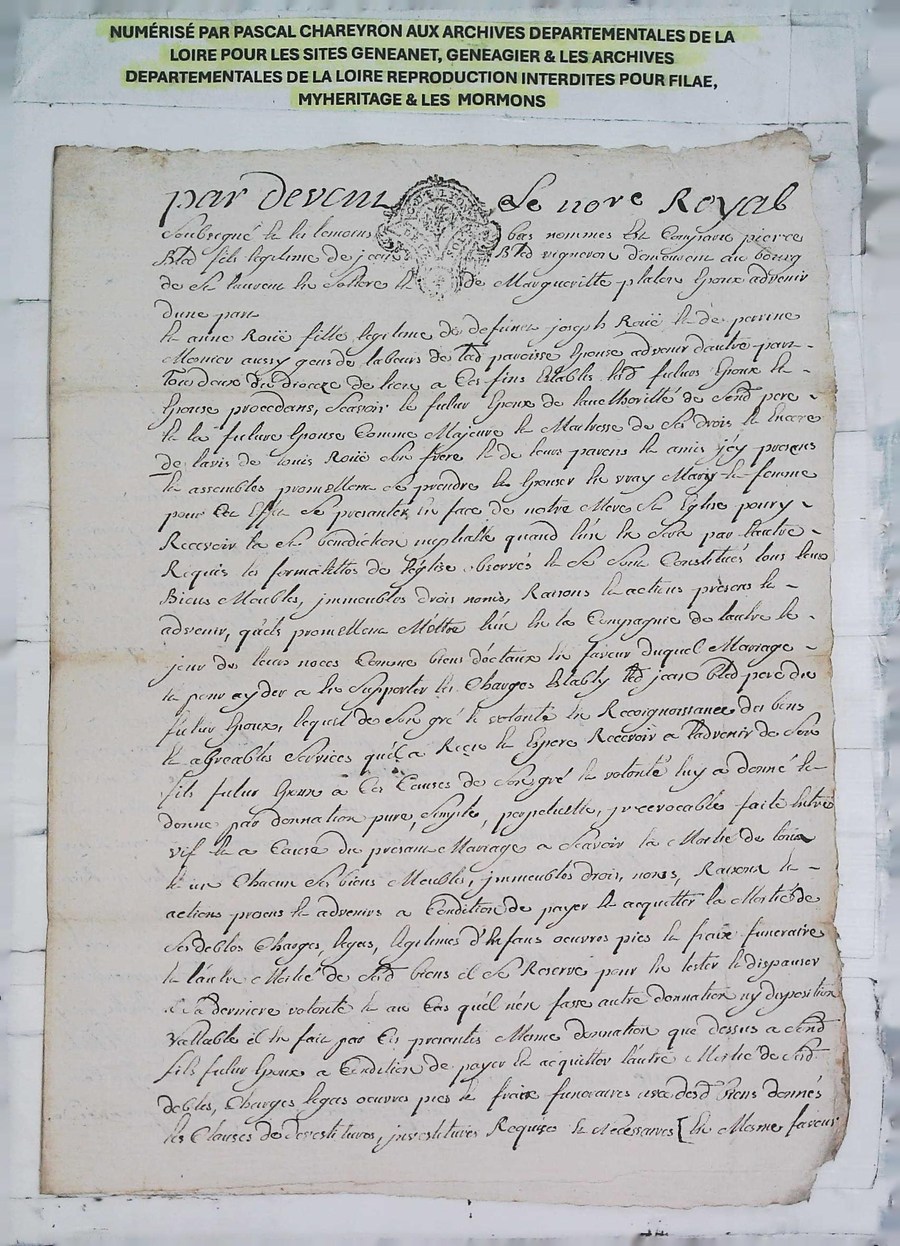 NUMÉRISÉ PAR PASCAL CHAREYRON AUX ARCHIVES DEPARTEMENTALES DE LA
LOIRE POUR LES SITES GENEANET, GENEAGIER & LES ARCHIVES
DEPARTEMENTALES DE LA LOIRE REPRODUCTION INTERDITES POUR FILAE,
MYHERITAGE & LES MORMONS
par devent Le nore Royal
Soubsigné et les temoins bas nommes Est Comparu pierre
fils legitime de jean vigneron demeurant au bourg
de St laurent de Margueritte platon Epoux advenir
dune part
Et anne Roüe fille legitime de defunct joseph Roüe et de perrine
Monier aussy gens de labeurs de lad paroisse Epouse advenir dautre part
Tous deux du dioceze de lion a Ces fins Establis led futurs Epoux Et
Epouse procedans, Scavoir le futur Epoux de lauthorité de Send pere
Et la future Epouse Comme Majeure Et Maitresse de Ses drois Et Encore
de lavis de Louis Roüe son frere Et de leurs parens Et amis icy presens
Et assembles promettent Se prendre Et Epouser En vray Mary Et femme
pour Cet Effet Se presenter En face de notre Mere Ste Eglise pour y
Recevoir la Ste benediction nuptialle quand l'un En Sera par lautre
Requis les formalittes de l'église observés Et Se Sont Constitués tous leurs
Biens Meubles, immeubles drois noms, Raisons Et actions présens Et
advenir, qu'ils promettent Mettre l'un En la Compagnie de lautre le
jour de leurs noces Comme biens dectaux En faveur duquel Mariage
Et pour ayder a En Supporter les Charges Estably led jean bled pere du
futur Epoux, lequel de Son gré Et volonté En Recoignoissance des bons
Et agreables Services qu'il a Reçu Et Espere Recevoir a l'advenir de Son
fils futur Epoux a Ces Causes de Son gré Et volonté luy a donné Et
donne par donnation pure, Simple, perpetuelle, jrrevocable faite Entre
vif Et a Cause du present Mariage a Scavoir la Moitié de tous
Et un Chacun Ses biens Meubles, jmmeubles drois, noms, Raisons Et
actions presens Et advenirs a Condition de payer Et acquitter la Moitié de
Ses debtes Charges, legas, legitimes d'Enfans oeuvres pies Et fraix funeraire
Et lautre Moitié de Sesd biens il Se Reserve pour En tester Et dispauser
a Sa derniere volonté Et au Cas qu'il n'en fasse autre donnation ny disposition
vallable il En fait par Ces presentes Meme donnation que dessus a Send
fils futur Epoux a Condition de payer Et acquitter lautre Moitié de Sesd
debtes, Charges legas oeuvres pies Et fraix funeraires desd biens donnés
les Clauses de devestitures, jnvestitures Requises Et necessaires En Mesme faveur